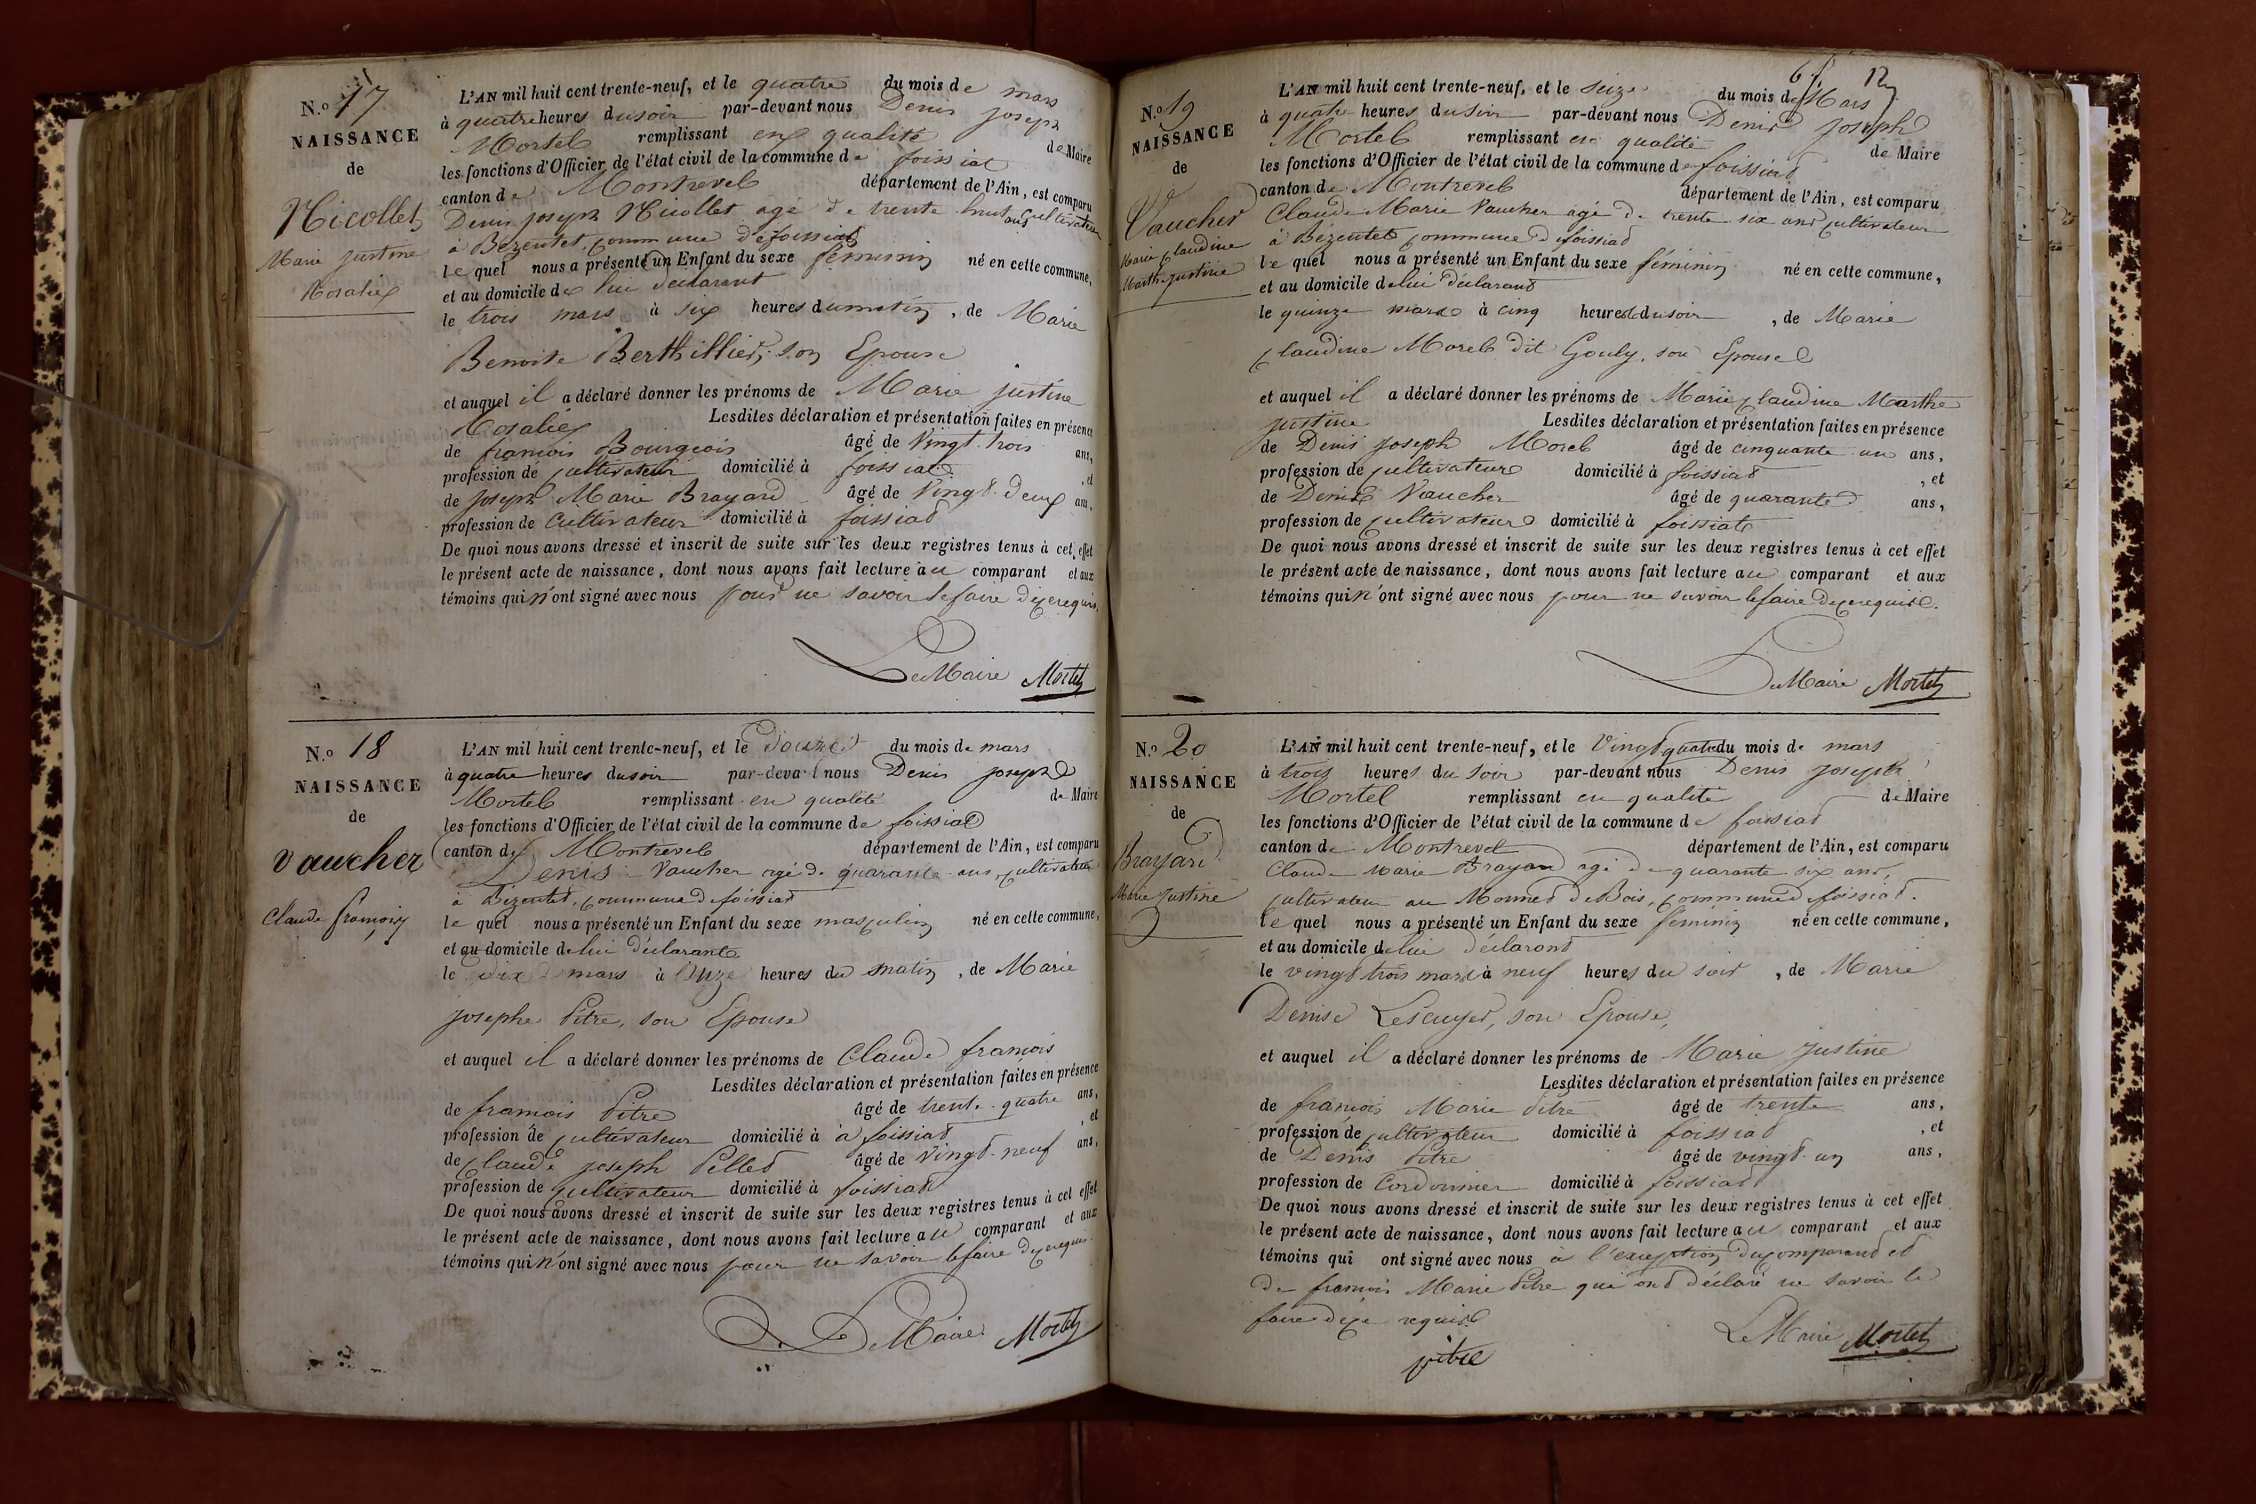 N.º 17
NAISSANCE
de
Nicollet
Marie Justine
Rosalie
L'AN mil huit cent trente-neuf, et le quatre du mois de mars
à quatre heures du soir par-devant nous Denis joseph
Mortel remplissant en qualité de Maire
les fonctions d'Officier de l'état civil de la commune de foissiat
canton de Montrevel département de l'Ain, est comparu
Denis joseph Nicollet agé de trente huit ans cultivateur
à Bézentet commune de foissiat
le quel nous a présenté un Enfant du sexe féminin né en cette commune,
et au domicile de lui déclarant
le trois mars à six heures du matin, de Marie
Benoite Berthillier, son Epouse
et auquel il a déclaré donner les prénoms de Marie justine
Rosalie Lesdites déclaration et présentation faites en présence
de francois Bourgeois âgé de vingt trois ans,
profession de cultivateur domicilié à foissiat, et
de joseph Marie Brayard âgé de vingt deux ans,
profession de cultivateur domicilié à foissiat
De quoi nous avons dressé et inscrit de suite sur les deux registres tenus à cet effet
le présent acte de naissance, dont nous avons fait lecture au comparant et aux
témoins qui n'ont signé avec nous pour ne savoir le faire de ce requis.
Le Maire Mortel
N.º 18
NAISSANCE
de
Vaucher
Claude françois
L'AN mil huit cent trente-neuf, et le douze du mois de mars
à quatre heures du soir par-devant nous Denis joseph
Mortel remplissant en qualité de Maire
les fonctions d'Officier de l'état civil de la commune de foissiat
canton de Montrevel département de l'Ain, est comparu
Denis Vaucher agé de quarante ans, cultivateur
à Bézentet, commune de foissiat
le quel nous a présenté un Enfant du sexe masculin né en cette commune,
et au domicile de lui déclarant
le dix mars à onze heures du matin, de Marie
josephe Pitre, son Epouse
et auquel il a déclaré donner les prénoms de Claude francois
Lesdites déclaration et présentation faites en présence
de francois Pitre âgé de trente-quatre ans,
profession de cultivateur domicilié à à foissiat, et
de Claude joseph Pellet âgé de vingt-neuf ans,
profession de cultivateur domicilié à foissiat
De quoi nous avons dressé et inscrit de suite sur les deux registres tenus à cet effet
le présent acte de naissance, dont nous avons fait lecture au comparant et aux
témoins qui n'ont signé avec nous pour ne savoir le faire de ce requis.
Le Maire Mortel
12
N.º 19
NAISSANCE
de
Vaucher
Marie Claudine
Marthe Justine
L'AN mil huit cent trente-neuf, et le seize du mois de Mars
à quatre heures du soir par-devant nous Denis Joseph
Mortel remplissant en qualité de Maire
les fonctions d'Officier de l'état civil de la commune de foissiat
canton de Montrevel département de l'Ain, est comparu
Claude Marie Vaucher agé de trente six ans cultivateur
à Bézentet commune de foissiat
le quel nous a présenté un Enfant du sexe féminin né en cette commune,
et au domicile de lui déclarant
le quinze mars à cinq heures du soir, de Marie
Claudine Morel dit Gouly, son Epouse
et auquel il a déclaré donner les prénoms de Marie Claudine Marthe
justine Lesdites déclaration et présentation faites en présence
de Denis joseph Morel âgé de cinquante un ans,
profession de cultivateur domicilié à foissiat, et
de Denis Vaucher âgé de quarante ans,
profession de cultivateur domicilié à foissiat
De quoi nous avons dressé et inscrit de suite sur les deux registres tenus à cet effet
le présent acte de naissance, dont nous avons fait lecture au comparant et aux
témoins qui n'ont signé avec nous pour ne savoir le faire de ce requis.
Le Maire Mortel
N.º 20
NAISSANCE
de
Brayard
Marie Justine
L'AN mil huit cent trente-neuf, et le vingt quatre du mois de mars
à trois heures du soir par-devant nous Denis joseph
Mortel remplissant en qualité de Maire
les fonctions d'Officier de l'état civil de la commune de foissiat
canton de Montrevel département de l'Ain, est comparu
Claude Marie Brayard agé de quarante six ans,
cultivateur au de Bois, commune de foissiat.
le quel nous a présenté un Enfant du sexe féminin né en cette commune,
et au domicile de lui déclarant
le vingt trois mars à neuf heures du soir, de Marie
Denise Lescuyer, son Epouse,
et auquel il a déclaré donner les prénoms de Marie Justine
Lesdites déclaration et présentation faites en présence
de francois Marie Pitre âgé de trente ans,
profession de cultivateur domicilié à foissiat, et
de Denis Pitre âgé de vingt-un ans,
profession de Cordonnier domicilié à foissiat
De quoi nous avons dressé et inscrit de suite sur les deux registres tenus à cet effet
le présent acte de naissance, dont nous avons fait lecture au comparant et aux
témoins qui ont signé avec nous à l'exception du comparant et
de francois Marie Pitre qui ont déclaré ne savoir le
faire de ce requis
pitre Le Maire Mortel